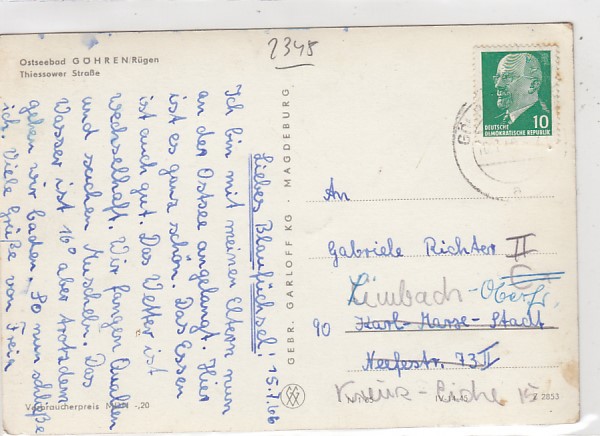 2345
Ostseebad GÖHREN/Rügen
Thiessower Straße
Liebes Blaufüchsel! 15.7.66
Ich bin mit meinen Eltern nun
an der Ostsee angelangt. Hier
ist es ganz schön. Das Essen
ist auch gut. Das Wetter ist
wechselhaft. Wir fangen Quallen
und suchen Muscheln. Das
Wasser ist 16° aber trotzdem
gehen wir baden. So nun schließe
ich. Viele Grüße von
Verbraucherpreis MDN -,20
GEBR. GARLOFF KG · MAGDEBURG
10
DEUTSCHE
DEMOKRATISCHE REPUBLIK
An
Gabriele Richter II
Limbach-Oberfr.
90 Karl-Marx-Stadt
Neefestr. 73 II
Z 2853